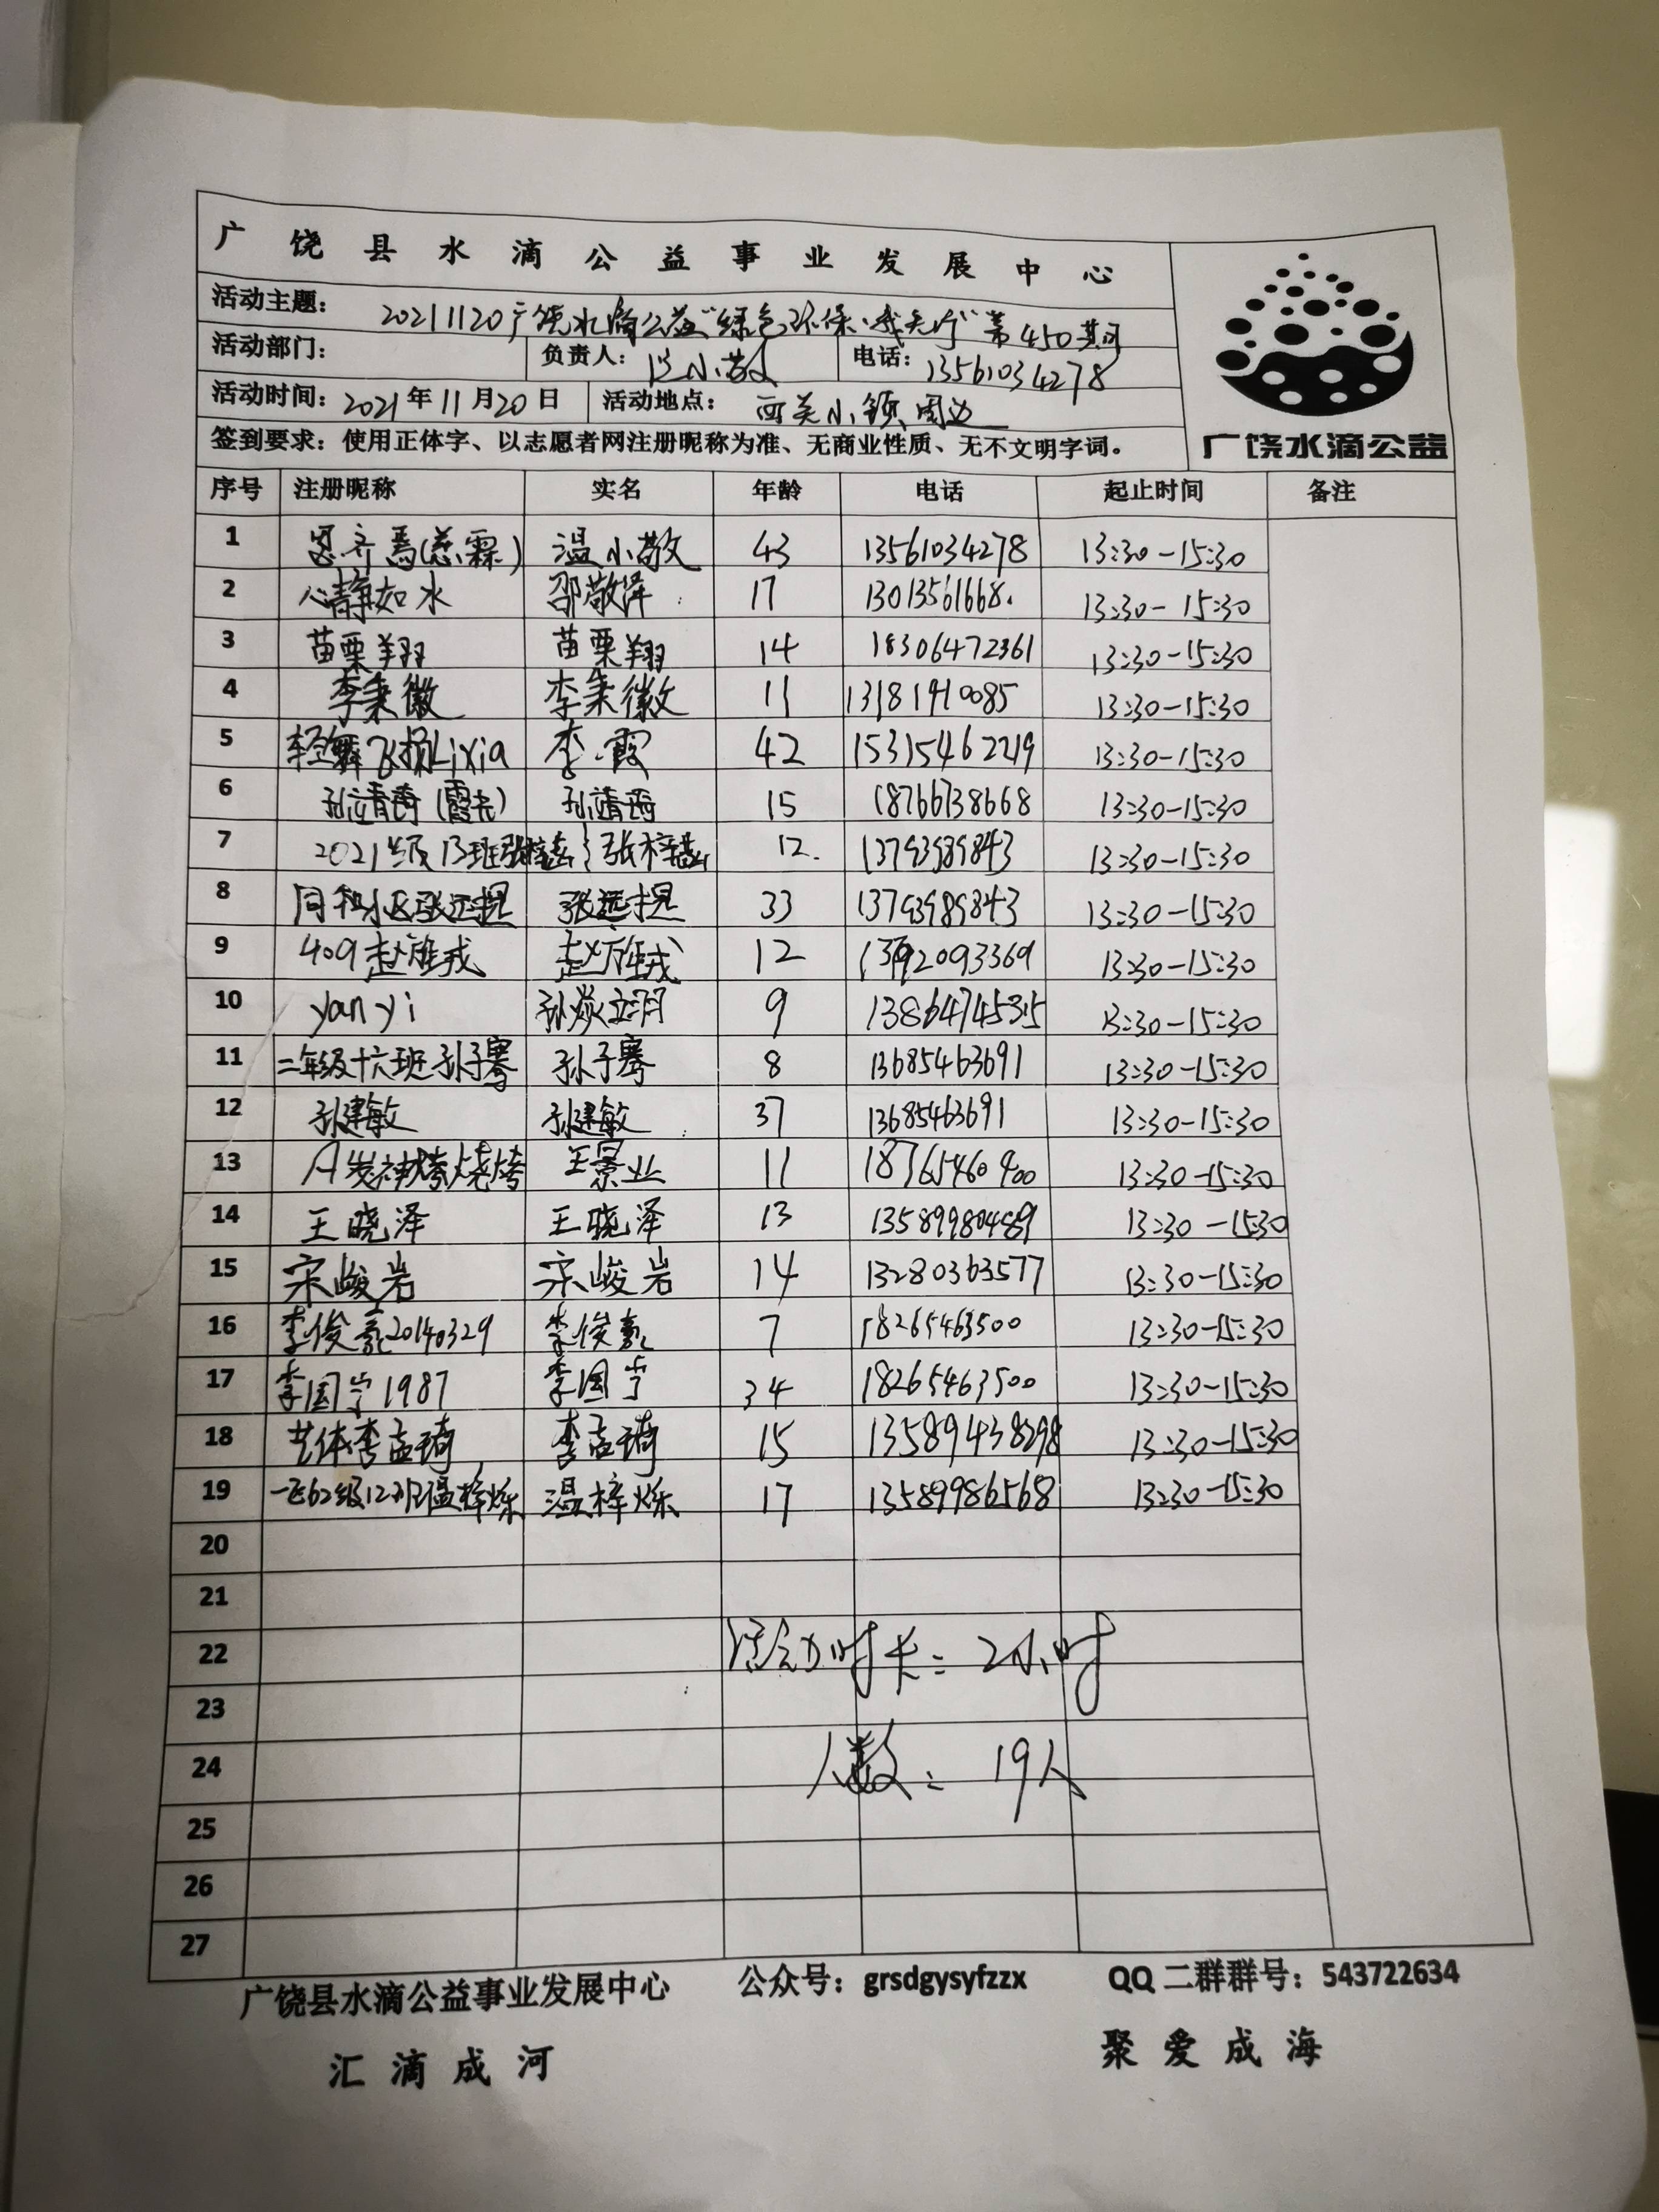 广饶县水滴公益事业发展中心
活动主题: 20211120广饶水滴公益"绿色环保·我先行"第450期
活动部门: 负责人: 温小敬 电话: 13561034278
活动时间: 2021年11月20日 活动地点: 西关小镇周边
签到要求: 使用正体字、以志愿者网注册昵称为准、无商业性质、无不文明字词。
广饶水滴公益
序号 注册昵称 实名 年龄 电话 起止时间 备注
1 思齐焉(慈霖) 温小敬 43 13561034278 13:30-15:30
2 心静如水 邵敬泽 17 13013561668. 13:30-15:30
3 苗栗翔 苗栗翔 14 18306472361 13:30-15:30
4 李秉徽 李秉徽 11 13181910085 13:30-15:30
5 轻舞飞扬Lixia 李霞 42 15315462219 13:30-15:30
6 孙靖 (霞光) 孙靖 15 18766738668 13:30-15:30
7 2021级13班张梓 张梓 12. 13793989843 13:30-15:30
8 同和小区张远提 张远提 33 13793989843 13:30-15:30
9 409赵 赵 12 2093369 13:30-15:30
10 yanyi 孙焱 9 13864745315 13:30-15:30
11 二年级十六班孙子骞 孙子骞 8 13685463691 13:30-15:30
12 孙建敏 孙建敏 37 13685463691 13:30-15:30
13 烧烤 王景业 11 18765460900 13:30-15:30
14 王晓泽 王晓泽 13 13589980489 13:30-15:30
15 宋峻岩 宋峻岩 14 13280363577 13:30-15:30
16 李俊毅20140329 李俊毅 7 18265463500 13:30-15:30
17 李国宁1987 李国宁 34 18265463500 13:30-15:30
18 艺体李孟琦 李孟琦 15 13589438298 13:30-15:30
19 一中62级12班温梓烁 温梓烁 17 13589986568 13:30-15:30
20
21
22 活动时长: 2小时
23
24 人数: 19人
25
26
27
广饶县水滴公益事业发展中心 公众号: grsdgysyfzzx QQ二群群号: 543722634
汇滴成河 聚爱成海